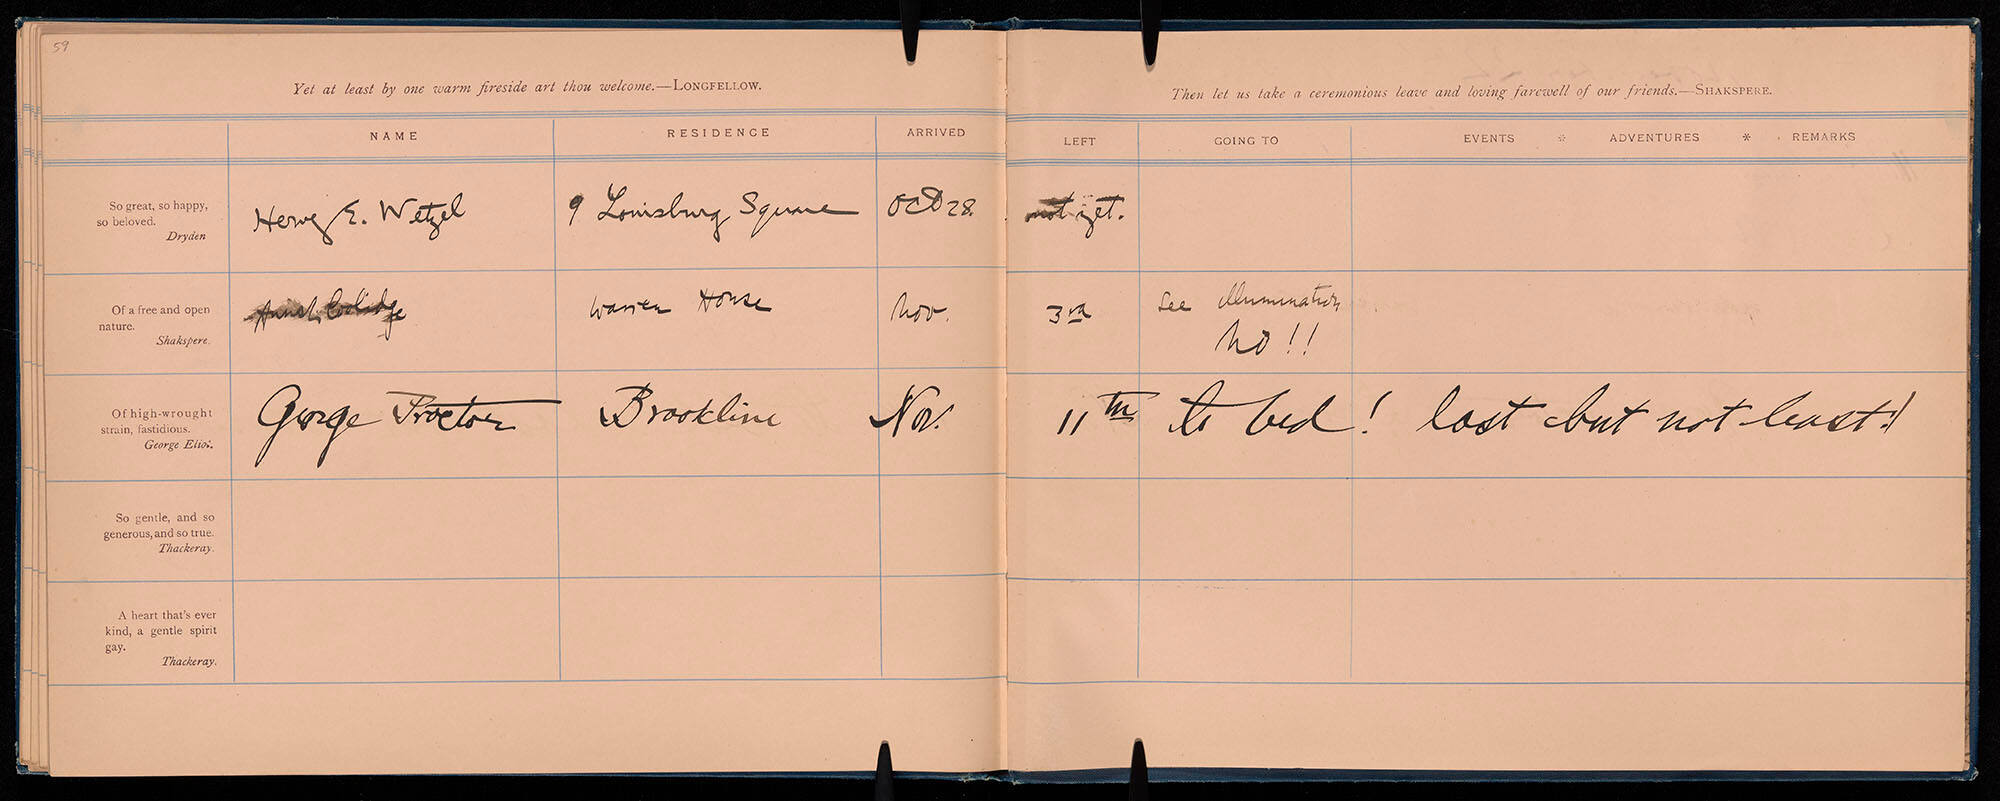 59
Yet at least by one warm fireside art thou welcome.—LONGFELLOW.
Then let us take a ceremonious leave and loving farewell of our friends.—SHAKSPERE.
NAME RESIDENCE ARRIVED LEFT GOING TO EVENTS * ADVENTURES * REMARKS
So great, so happy,
so beloved.
Dryden
Hervey E. Wetzel 9 Louisburg Square Oct 28. not yet.
Of a free and open
nature.
Shakspere.
Coolidge Warren House Nov. 3rd See illumination
No!!
Of high-wrought
strain, fastidious.
George Eliot.
George Proctor Brookline Nov. 11th to bed! last but not least!
So gentle, and so
generous, and so true.
Thackeray.
A heart that's ever
kind, a gentle spirit
gay.
Thackeray.